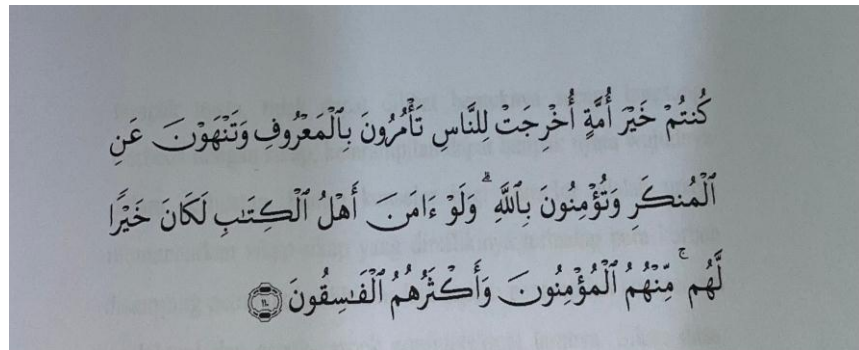 كُنتُمْ خَيْرَ أُمَّةٍ أُخْرِجَتْ لِلنَّاسِ تَأْمُرُونَ بِٱلْمَعْرُوفِ وَتَنْهَوْنَ عَنِ
ٱلْمُنكَرِ وَتُؤْمِنُونَ بِٱللَّهِ ۗ وَلَوْ ءَامَنَ أَهْلُ ٱلْكِتَٰبِ لَكَانَ خَيْرًا
لَّهُم ۚ مِّنْهُمُ ٱلْمُؤْمِنُونَ وَأَكْثَرُهُمُ ٱلْفَٰسِقُونَ ١١٠